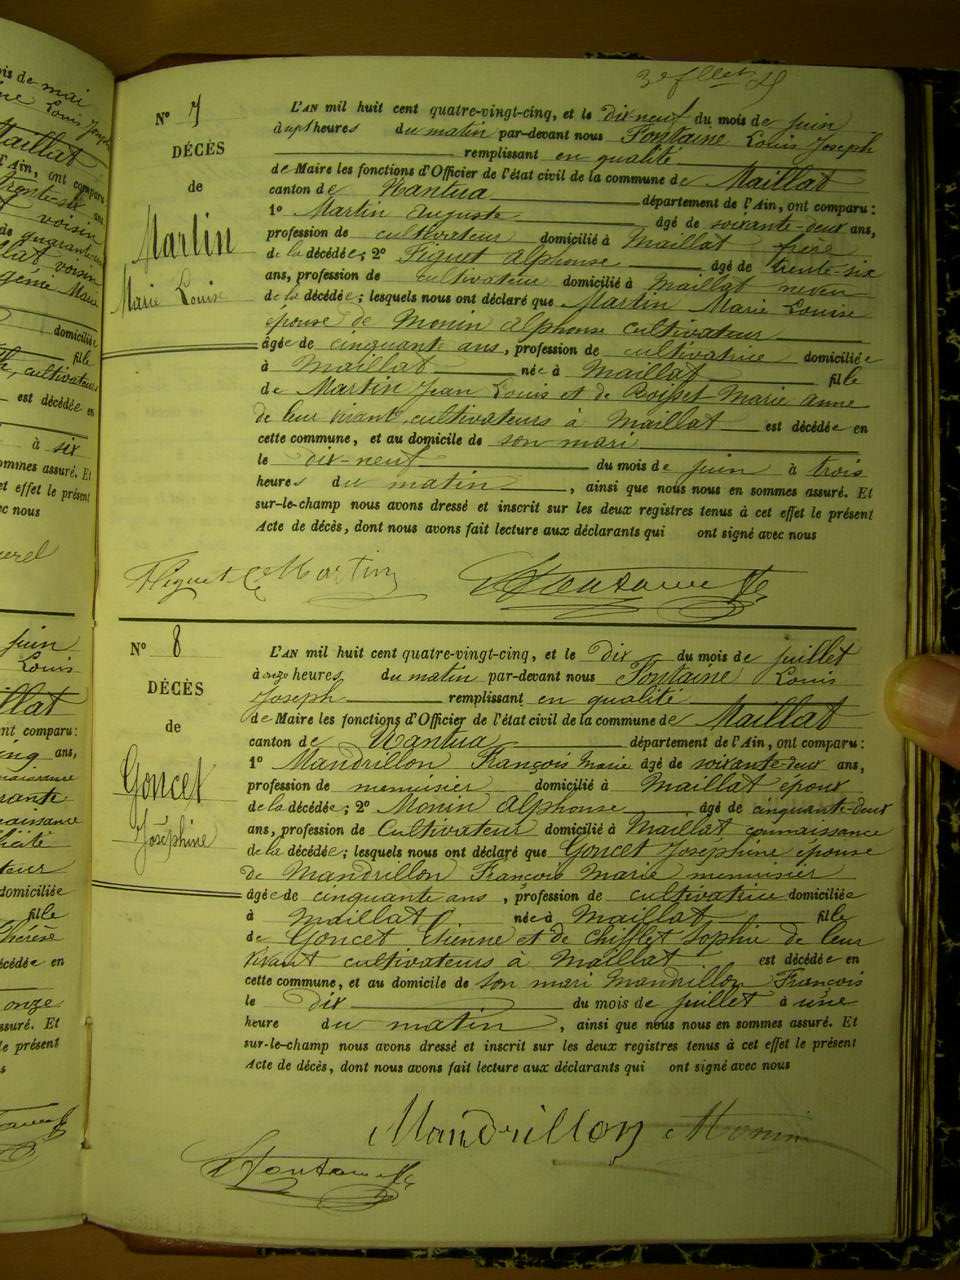 3e f
N° 7
DÉCÈS
de
Martin
Marie Louise
L'AN mil huit cent quatre-vingt-cinq, et le Dix-neuf du mois de juin
à sept heures du matin par-devant nous Fontaine Louis Joseph
remplissant en qualité
de Maire les fonctions d'Officier de l'état civil de la commune de Maillat
canton de Nantua département de l'Ain, ont comparu :
1° Martin Auguste âgé de soixante-deux ans,
profession de cultivateur domicilié à Maillat frère
de la décédée ; 2° Figuet Alphonse âgé de trente-six
ans, profession de cultivateur domicilié à Maillat neveu
de la décédée ; lesquels nous ont déclaré que Martin Marie Louise
épouse de Monin Alphonse cultivateur
âgée de cinquante ans, profession de cultivatrice domiciliée
à Maillat née à Maillat fille
de Martin Jean Louis et de Marie Anne
de leur vivant cultivateurs à Maillat est décédée en
cette commune, et au domicile de son mari
le dix-neuf du mois de juin à trois
heures du matin, ainsi que nous nous en sommes assuré. Et
sur-le-champ nous avons dressé et inscrit sur les deux registres tenus à cet effet le présent
Acte de décès, dont nous avons fait lecture aux déclarants qui ont signé avec nous
Figuet Martin Fontaine
N° 8
DÉCÈS
de
Goncet
Joséphine
L'AN mil huit cent quatre-vingt-cinq, et le Dix du mois de juillet
à onze heures du matin par-devant nous Fontaine Louis
Joseph remplissant en qualité
de Maire les fonctions d'Officier de l'état civil de la commune de Maillat
canton de Nantua département de l'Ain, ont comparu :
1° Mandrillon François Marie âgé de soixante-deux ans,
profession de menuisier domicilié à Maillat époux
de la décédée ; 2° Monin Alphonse âgé de cinquante-deux
ans, profession de Cultivateur domicilié à Maillat connaissance
de la décédée ; lesquels nous ont déclaré que Goncet Joséphine épouse
de Mandrillon François Marie menuisier
âgée de cinquante ans, profession de cultivatrice domiciliée
à Maillat née à Maillat fille
de Goncet Etienne et de Chifflet Sophie de leur
vivant cultivateurs à Maillat est décédée en
cette commune, et au domicile de son mari Mandrillon François
le dix du mois de juillet à une
heure du matin, ainsi que nous nous en sommes assuré. Et
sur-le-champ nous avons dressé et inscrit sur les deux registres tenus à cet effet le présent
Acte de décès, dont nous avons fait lecture aux déclarants qui ont signé avec nous
Mandrillon Monin
Fontaine